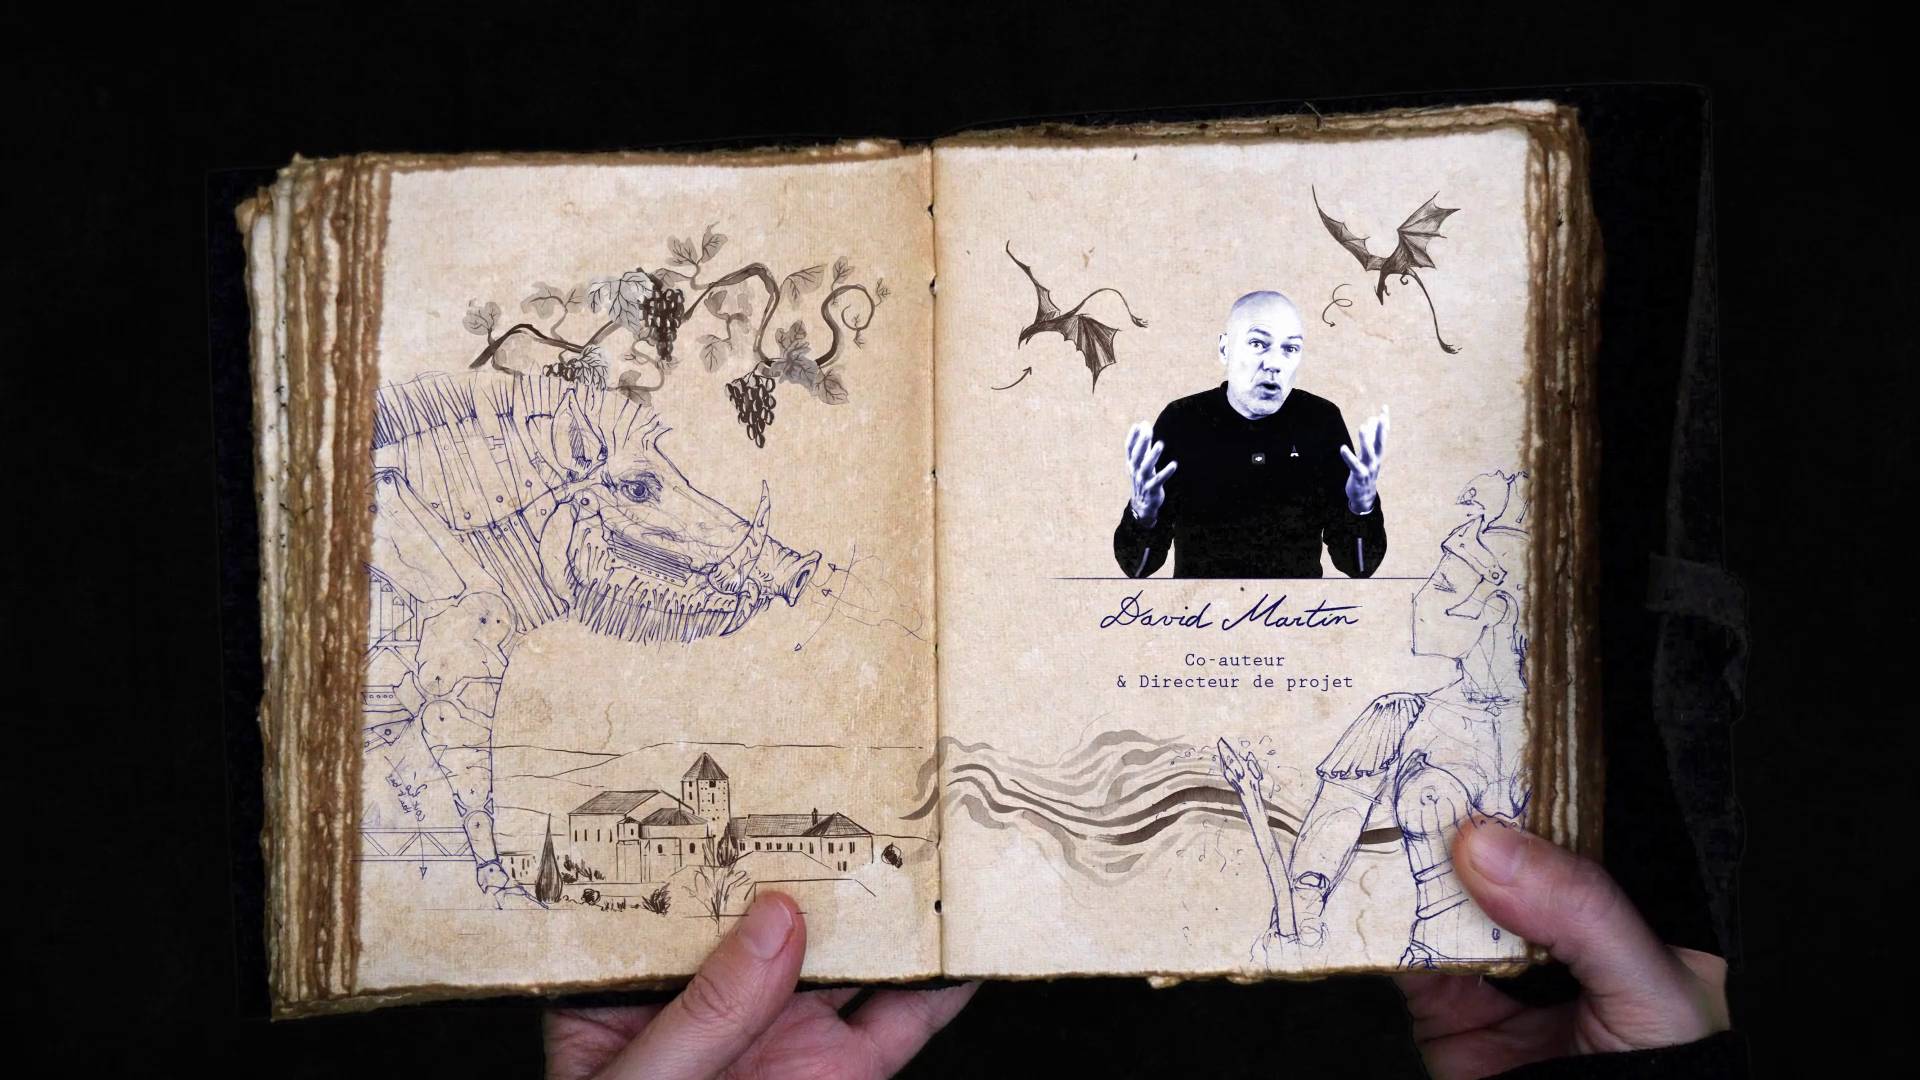 David Martin
Co-auteur
& Directeur de projet